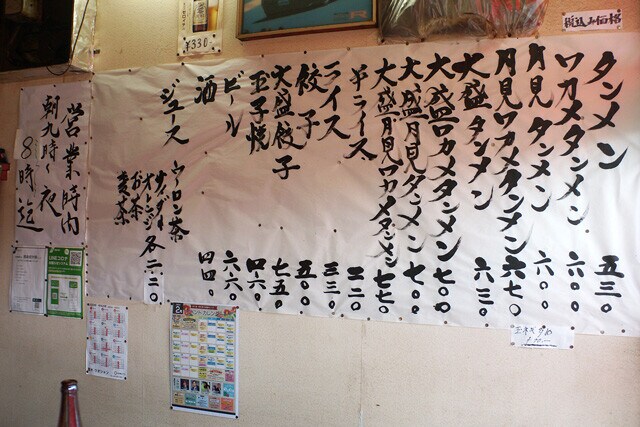 税込み価格
タンメン 五三〇
ワカメタンメン 六〇〇
月見タンメン 六〇〇
月見ワカメタンメン 六七〇
大盛タンメン 六三〇
大盛ワカメタンメン 七〇〇
大盛月見タンメン 七〇〇
大盛月見ワカメタンメン 七七〇
半ライス 二二〇
ライス 三三〇
餃子 五〇〇
大盛餃子 七五〇
玉子焼 四六〇
ビール 六六〇
酒 四四〇
ジュース
ウーロン茶
サイダー
オレンジ
お茶
麦茶
各二二〇
営業時間
朝九時〜夜
8時迄
¥330